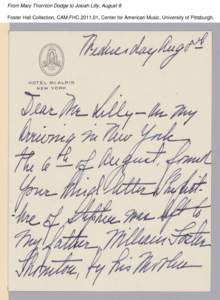 From Mary Thornton Dodge to Josiah Lilly, August 8
Foster Hall Collection, CAM.FHC.2011.01, Center for American Music, University of Pittsburgh.
Wednesday Aug 8th
HOTEL McALPIN
NEW YORK
Dear Mr Lilly – On my
arriving in New York
the 6th of August, found
your kind letter. The
of Stephen was left to
my father, William Foster
Thornton, by his Mother